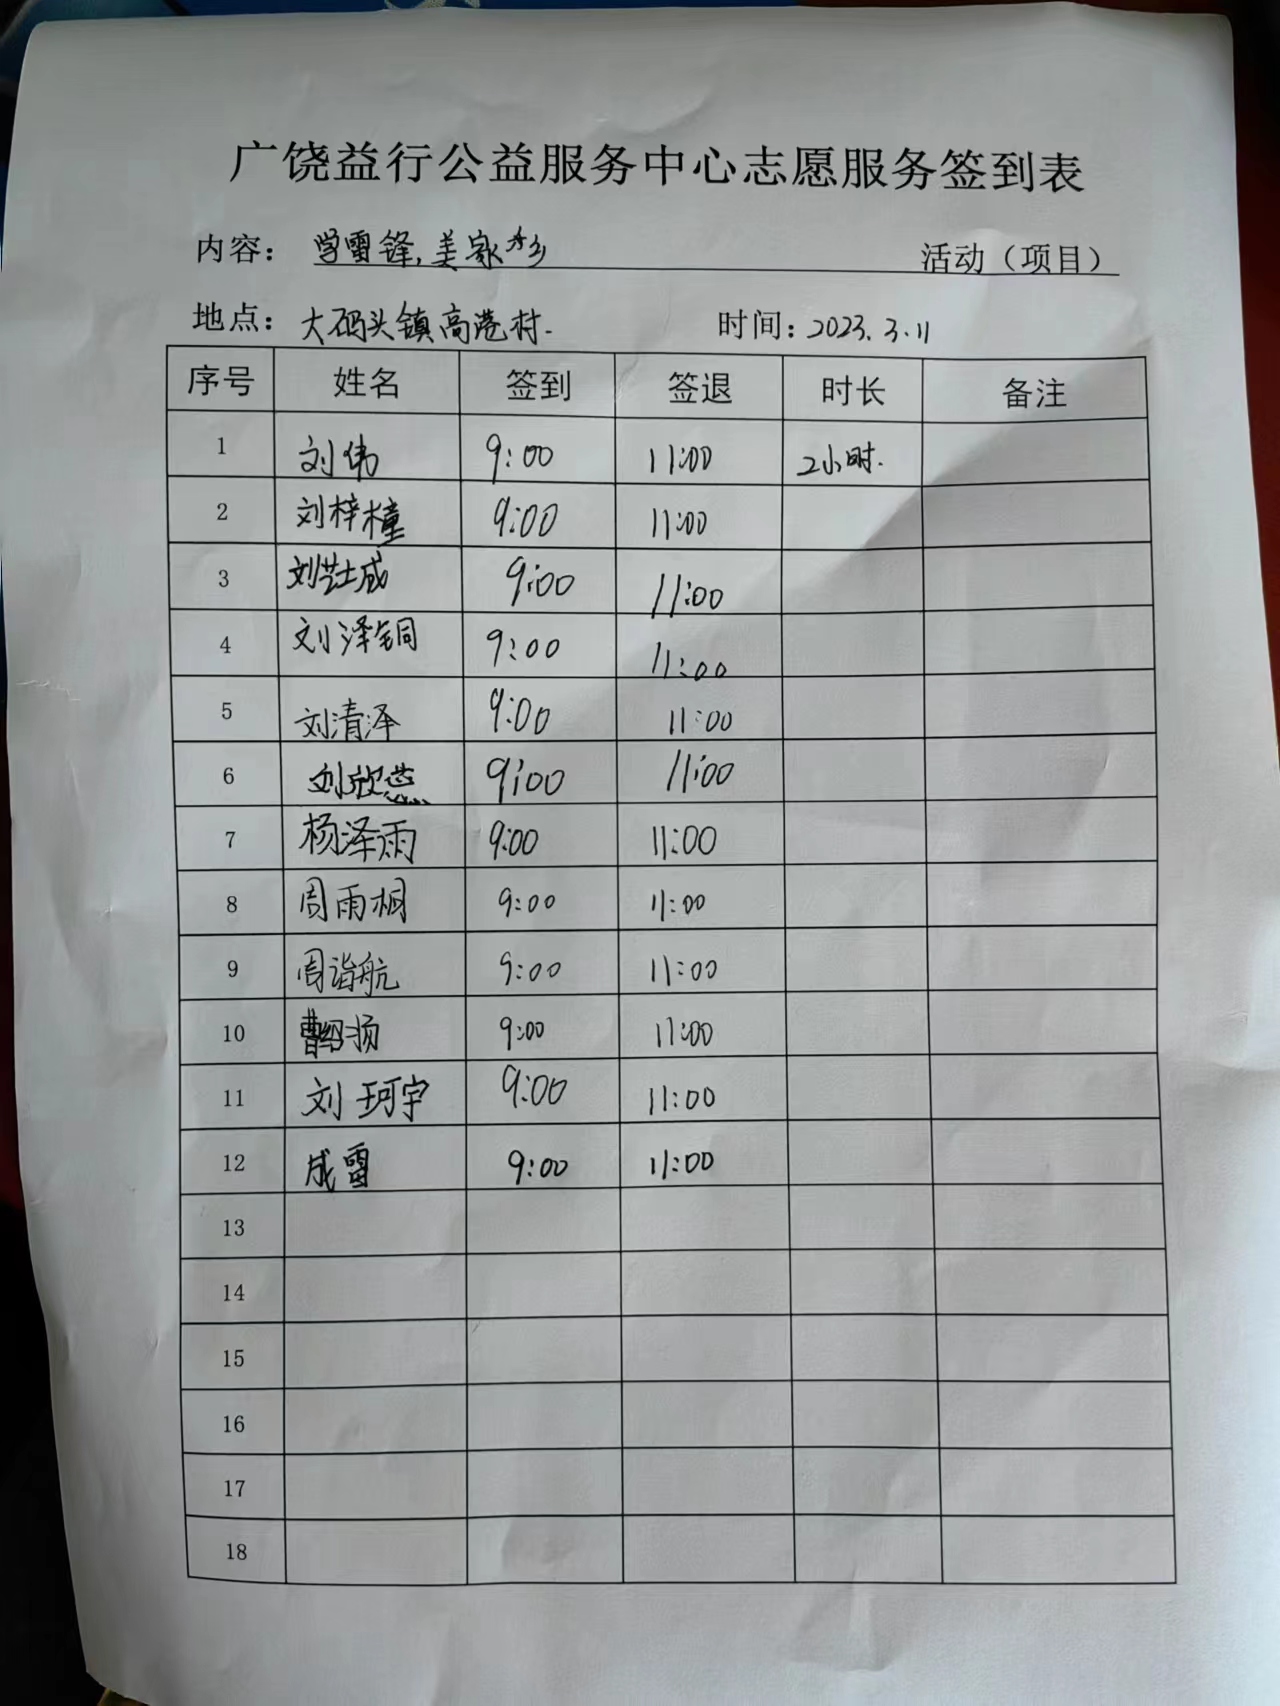 广饶益行公益服务中心志愿服务签到表
内容： 学雷锋,美家乡 活动（项目）
地点： 大码头镇高港村. 时间：2023.3.11
序号 姓名 签到 签退 时长 备注
1 刘伟 9:00 11:00 2小时.
2 刘梓橦 9:00 11:00
3 刘芷成 9:00 11:00
4 刘泽铜 9:00 11:00
5 刘清泽 9:00 11:00
6 刘欣蕊 9:00 11:00
7 杨泽雨 9:00 11:00
8 周雨桐 9:00 11:00
9 周诣航 9:00 11:00
10 曹绍扬 9:00 11:00
11 刘珂宇 9:00 11:00
12 成雷 9:00 11:00
13
14
15
16
17
18